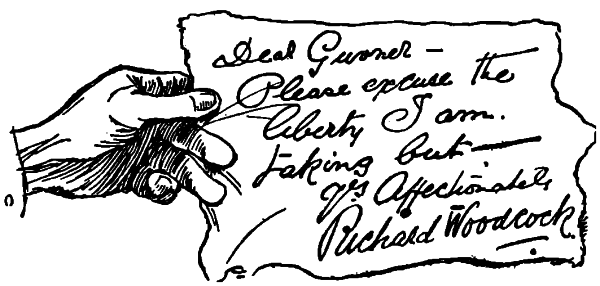 Dear Gunner —
Please excuse the
liberty I am.
taking but —
yrs Affectionately
Richard Woodcock.